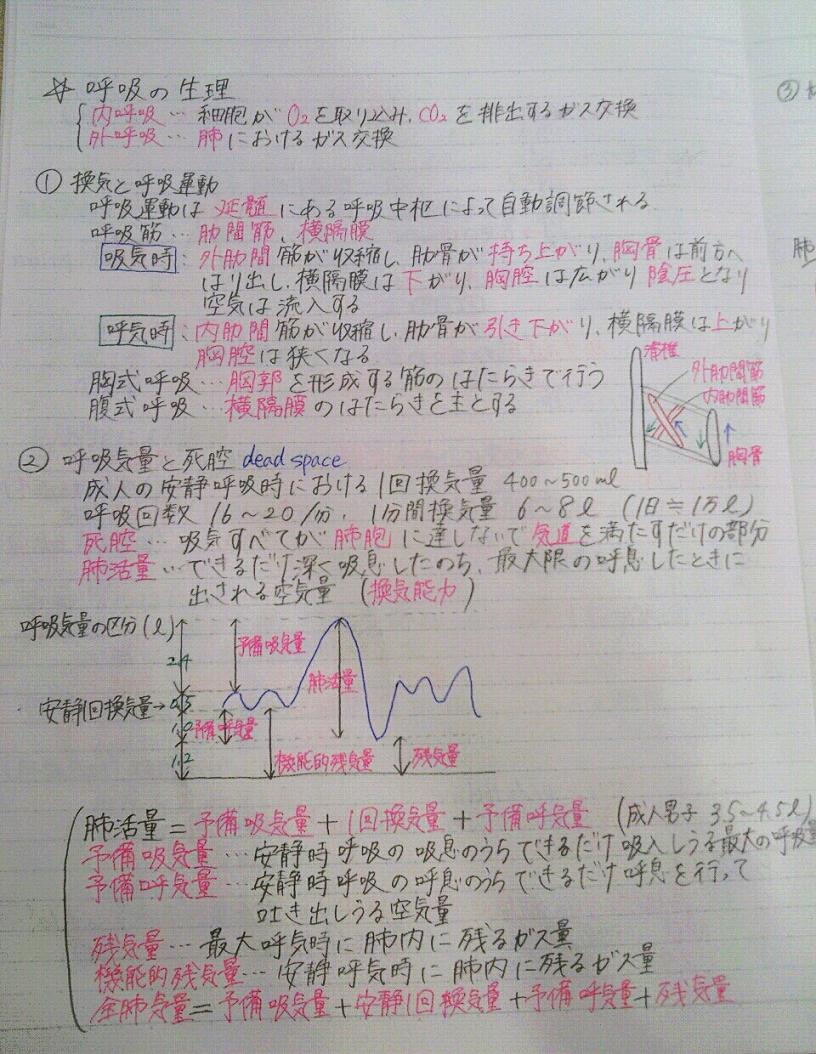 ☆ 呼吸の生理
内呼吸…細胞がO₂を取り込み、CO₂を排出するガス交換
外呼吸…肺におけるガス交換
① 換気と呼吸運動
呼吸運動は延髄にある呼吸中枢によって自動調節される
呼吸筋…肋間筋、横隔膜
吸気時：外肋間筋が収縮し、肋骨が持ち上がり、胸骨は前方へ
はり出し、横隔膜は下がり、胸腔は広がり陰圧となり
空気は流入する
呼気時：内肋間筋が収縮し、肋骨が引き下がり、横隔膜は上がり
胸腔は狭くなる
胸式呼吸…胸郭を形成する筋のはたらきで行う
腹式呼吸…横隔膜のはたらきを主とする
脊椎
外肋間筋
内肋間筋
胸骨
② 呼吸気量と死腔 dead space
成人の安静呼吸時における1回換気量 400～500ml
呼吸回数 16～20/分、1分間換気量 6～8l (1日≒1万l)
死腔…吸気すべてが肺胞に達しないで気道を満たすだけの部分
肺活量…できるだけ深く吸息したのち、最大限の呼息したときに
出される空気量 (換気能力)
呼吸気量の区分(l)
2.4
予備吸気量
肺活量
安静1回換気量→0.5
1.0
予備呼気量
1.2
機能的残気量
残気量
肺活量＝予備吸気量＋1回換気量＋予備呼気量 (成人男子 3.5～4.5l)
予備吸気量…安静時呼吸の吸息のうちできるだけ吸入しうる最大の呼吸量
予備呼気量…安静時呼吸の呼息のうちできるだけ呼息を行って
吐き出しうる空気量
残気量…最大呼気時に肺内に残るガス量
機能的残気量…安静呼気時に肺内に残るガス量
全肺気量＝予備吸気量＋安静1回換気量＋予備呼気量＋残気量
③
肺